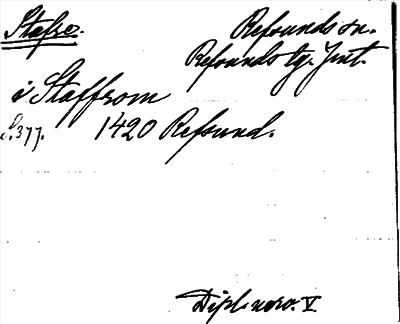 Stafre.
Refsunds sn.
Refsunds tg. Jmt.
i Staffrom
S. 377. 1420 Refsund.
Dipl. norv. V